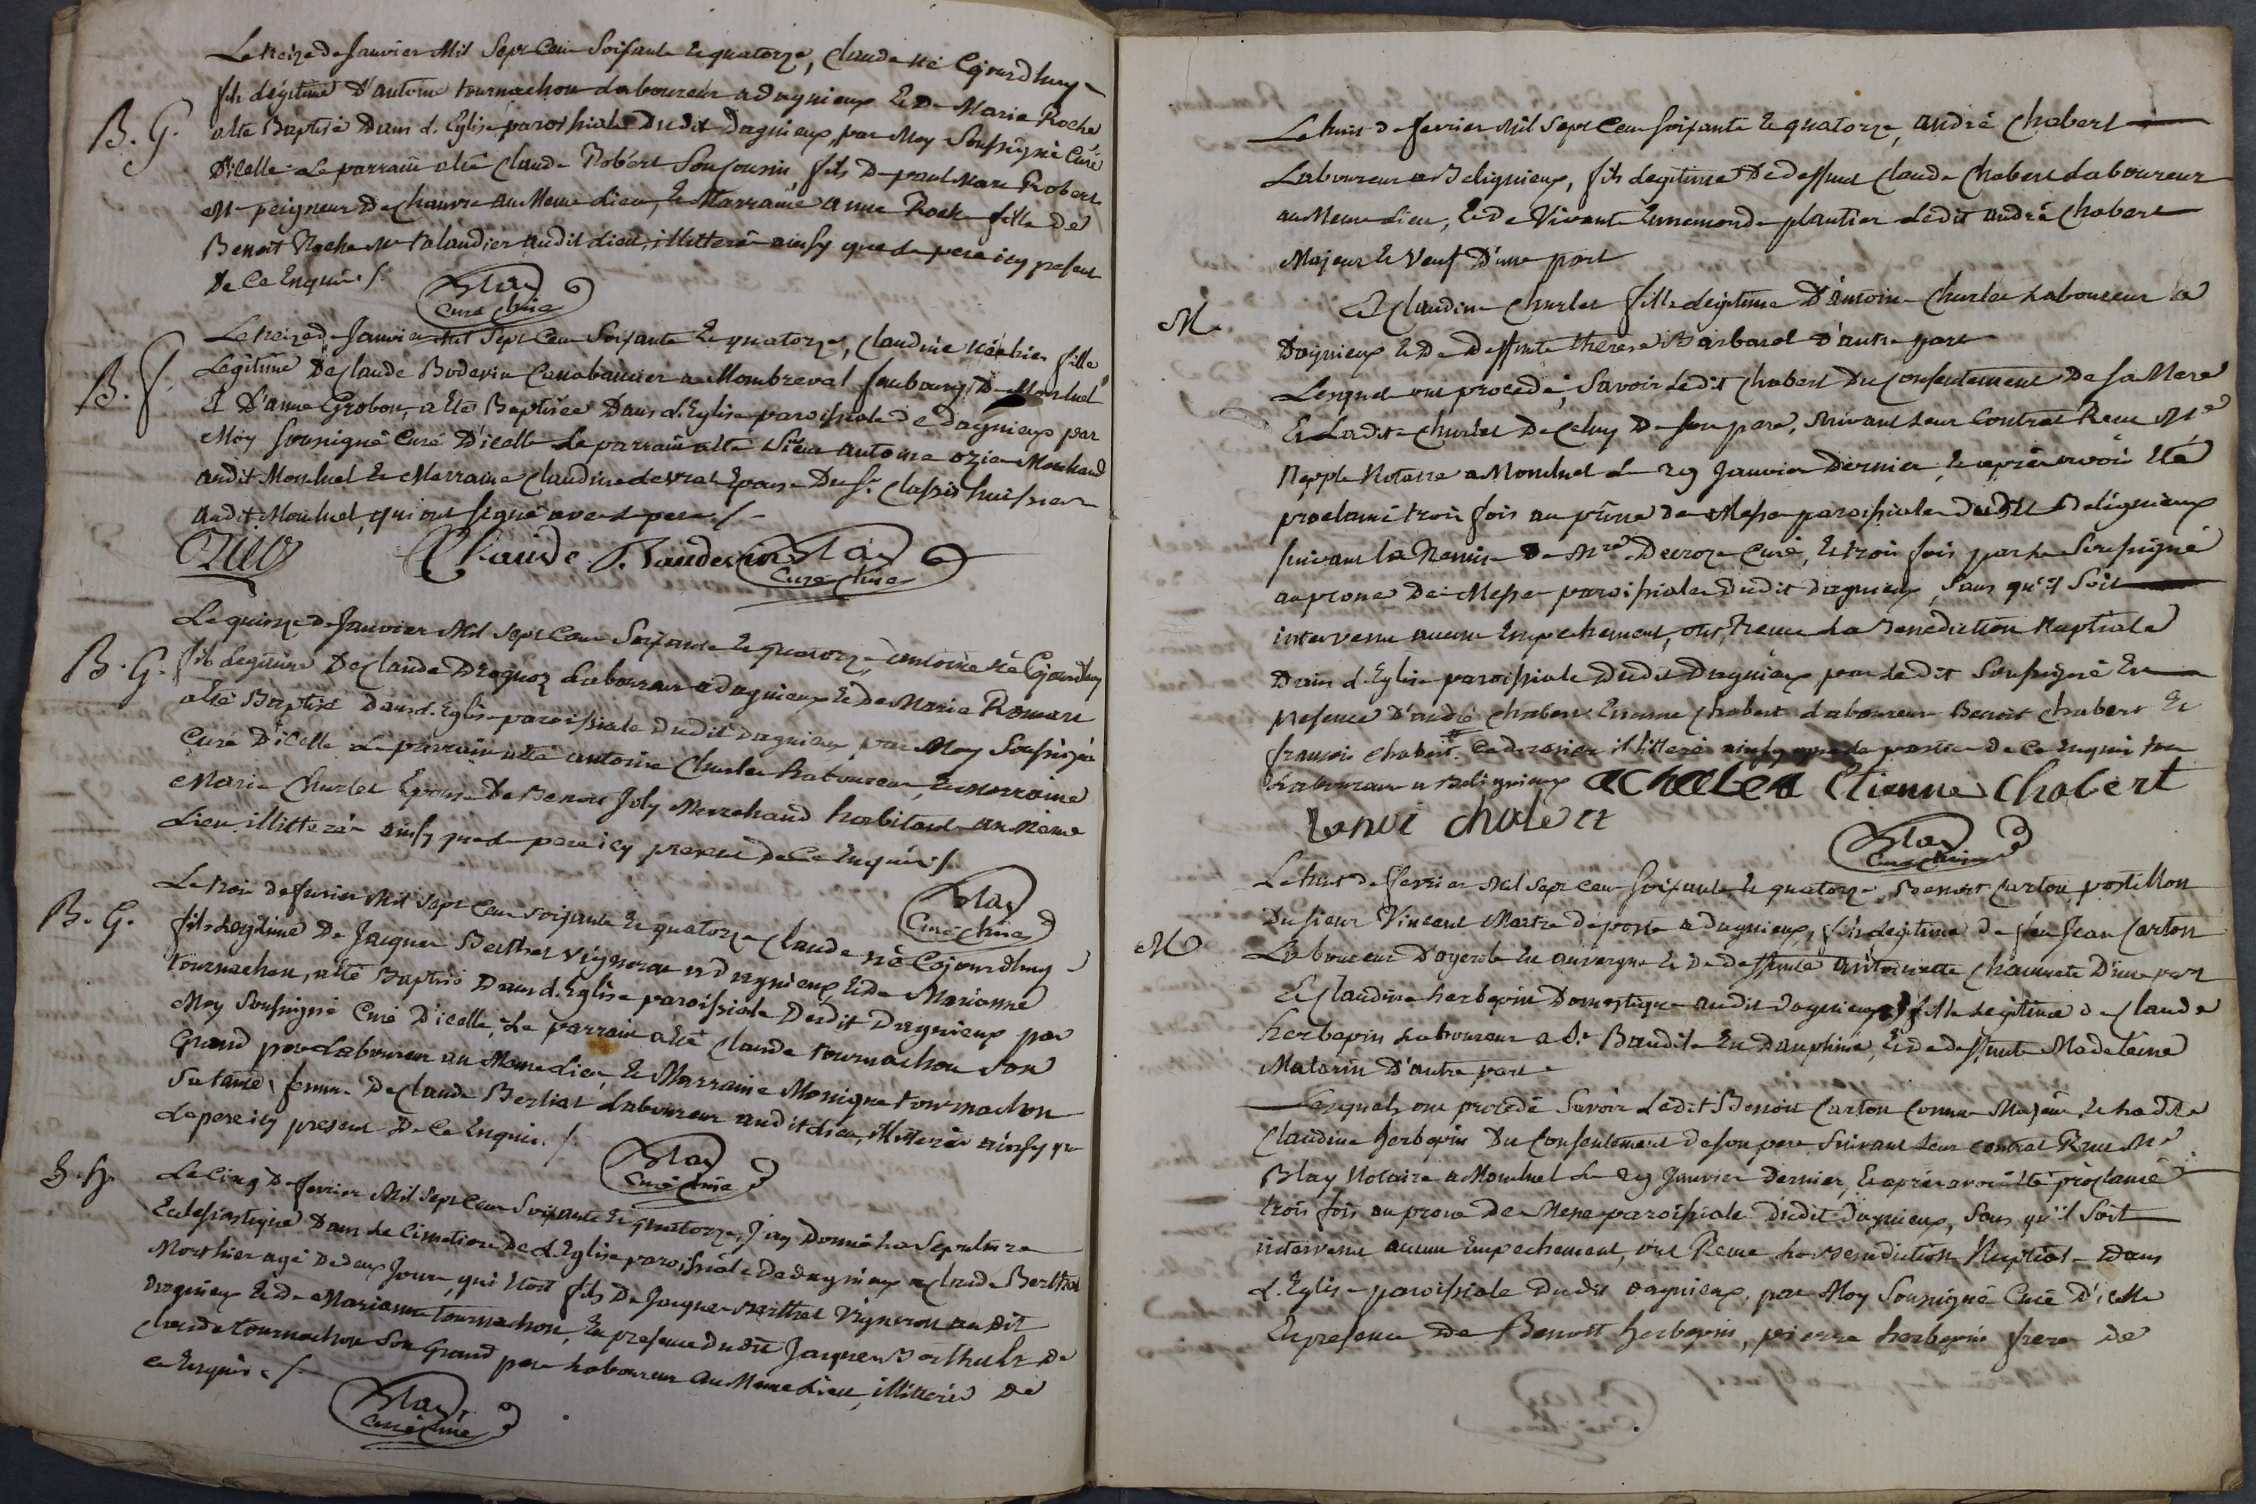 Le treize de Janvier Mil Sept Cens Soixante Et quatorze, Claude né Cejourdhuy
B. G.
fils légitime D'antoine tournachon Laboureur a dagnieux Et De Marie Roche
a été Baptisé Dans L'Eglise paroissiale Dudit Dagnieux par Moy Soussigné Curé
D'icelle Le parrain a été Claude Robert Son Cousin, fils De paul Marc Robert
Me peigneur De Chanvre au Meme Lieu, Et Marraine anne Roche fille De
Benoit Roche Me taland ier audit Lieu, illitterés ainsy que Le pere icy present
De Ce Enquis ./.
Blay
Curé
Le treize de Janvier Mil Sept Cens Soixante Et quatorze, Claudine née hier fille
B. f.
Légitime De Claude Boderin Cabaretier a Mombreval faubourg De Montluel
Et D'anne Grobon, a Eté Baptisée Dans L'Eglise paroissiale De Dagnieux par
Moy soussigné Curé D'icelle Le parrain a été Sieur antoine ozier Marchand
audit Montluel Et Marraine Claudine devrat Epouse Du Sr. Classis huissier
audit Montluel, qui ont signé avec Le pere ./.
Ozier Claude Bauderin Blay
Curé
Le quinze De Janvier Mil Sept Cens Soixante Et quatorze, antoine né Cejourdhuy
B. G.
fils Legitime De Claude Droguoz Laboureur a dagnieux Et De Marie Romans
a été Baptisé Dans L'Eglise paroissiale Dudit Dagnieux par Moy Soussigné
Curé D'icelle Le parrain a été antoine Churlet Laboureur, Et Marraine
Marie Churlet Epouse De Benoit Joly Marchand habitant au Même
Lieu illitterés ainsy que Le pere icy present De Ce Enquis ./.
Blay
Curé
Le trois de fevrier Mil Sept Cens Soixante Et quatorze Claude né Cejourdhuy
B. G.
fils Legitime De Jacques Berthet Vigneron a Dagnieux, Et De Marianne
tournachon, a été Baptisé Dans L'Eglise paroissiale Dudit Dagnieux par
Moy Soussigné Curé D'icelle, Le parrain a été Claude tournachon Son
Grand pere Laboureur au Meme Lieu, Et Marraine Monique tournachon
Sa tante, femme De Claude Berliat Laboureur audit Lieu, illitterés ainsy que
Le pere icy present De Ce Enquis ./.
Blay
Curé
Le Cinq De fevrier Mil Sept Cens Soixante Et quatorze, J'ay Donné La Sepulture
Eclesiastique Dans Le Cimetiere De L'Eglise paroissiale De dagnieux a Claude Berthet
Mort hier agé De deux Jours, qui Etoit fils De Jacques Berthet Vigneron audit
Dagnieux Et De Marianne tournachon, En presence Dudit Jacques Berthet Et De
Claude tournachon Son Grand pere Laboureur au Meme Lieu, illitterés De
Ce Enquis ./.
Blay
Curé
Le huit De fevrier Mil Sept Cens soixante Et quatorze, andré Chabert
Laboureur a Belignieux, fils Legitime De deffunt Claude Chabert Laboureur
au Meme Lieu, Et De Vivante Ennemonde plantier Ledit andré Chabert
Majeur Et Veuf D'une part
M.
Et Claudine Churlet fille Legitime D'antoine Churlet Laboureur a
Dagnieux Et De Deffunte therese Barbaret D'autre part
Lesquels ont procedé, Savoir Ledit Chabert Du Consentement De Sa Mere
Et Ladite Churlet De Celuy De Son pere, Suivant Leur Contrat Recu Me
Notaire a Montluel Le 29 Janvier Dernier, Et après avoir Eté
proclamé trois fois au prône De Messe paroissiale Dudit Belignieux
suivant La Remise De Mre. Decroze Curé, Et trois fois par Le Soussigné
au prone De Messe paroissiale Dudit Dagnieux, Sans qu'il Soit
intervenu aucun Empechement, ont Receu La Benediction Nuptiale
Dans L'Eglise paroissiale Dudit Dagnieux par Le Dit Soussigné En
presence D'andré Chabert Etienne Chabert Laboureur Benoit Chabert Et
francois Chabert Ce dernier illitteré ainsy que Les parties De Ce Enquis tous
Laboureurs a Belignieux a Chabert Etienne Chabert
benoi chabert
Blay
Curé
Le huit De fevrier Mil Sept Cens Soixante Et quatorze, Benoit Carton postillon
Du Sieur Vincent Maitre De poste a Dagnieux, fils Legitime De feu Jean Carton
M
Laboureur D'ayerole En auvergne Et De Deffunte antoinette Chaunete D'une part
Et Claudine herbepin Domestique audit Dagnieux, fille Legitime De Claude
herbepin Laboureur a St. Baudile En Dauphiné, Et De deffunte Madeleine
Matarin D'autre part
Lesquels ont procedé Savoir Ledit Benoit Carton Comme Majeur Et Ladite
Claudine herbepin Du Consentement De son pere Suivant Leur Contrat Recu Me
Blay Notaire a Montluel Le 29 Janvier Dernier, Et après avoir été proclamé
trois fois au prone De Messe paroissiale Dudit Dagnieux, Sans qu'il Soit
intervenu aucun Empechement, ont Receu La Benediction Nuptiale Dans
L'Eglise paroissiale Dudit Dagnieux, par Moy Soussigné Curé D'icelle
En presence De Benoit herbepin, pierre herbepin frere De